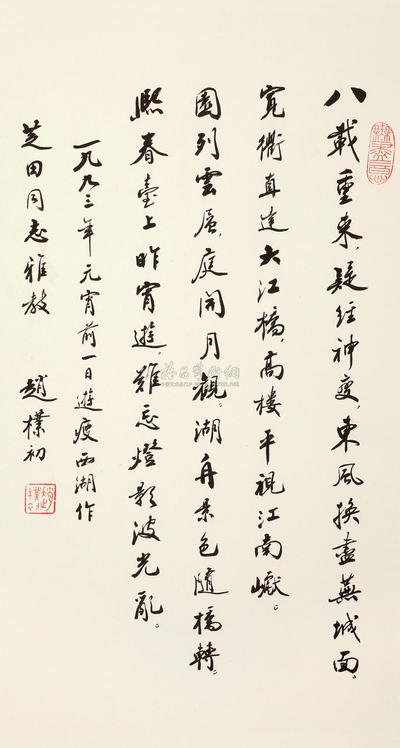 八載重來，疑経神变，東風換盡蕪城面。
寬衢直達大江橋，高樓平視江南巘。
園列雲，庭開月觀。湖舟景色隨橋轉。
熙春臺上昨宵遊，難忘燈影波光亂。
一九九三年元宵前一日遊瘦西湖作
芝田同志雅教 趙樸初
無盡意